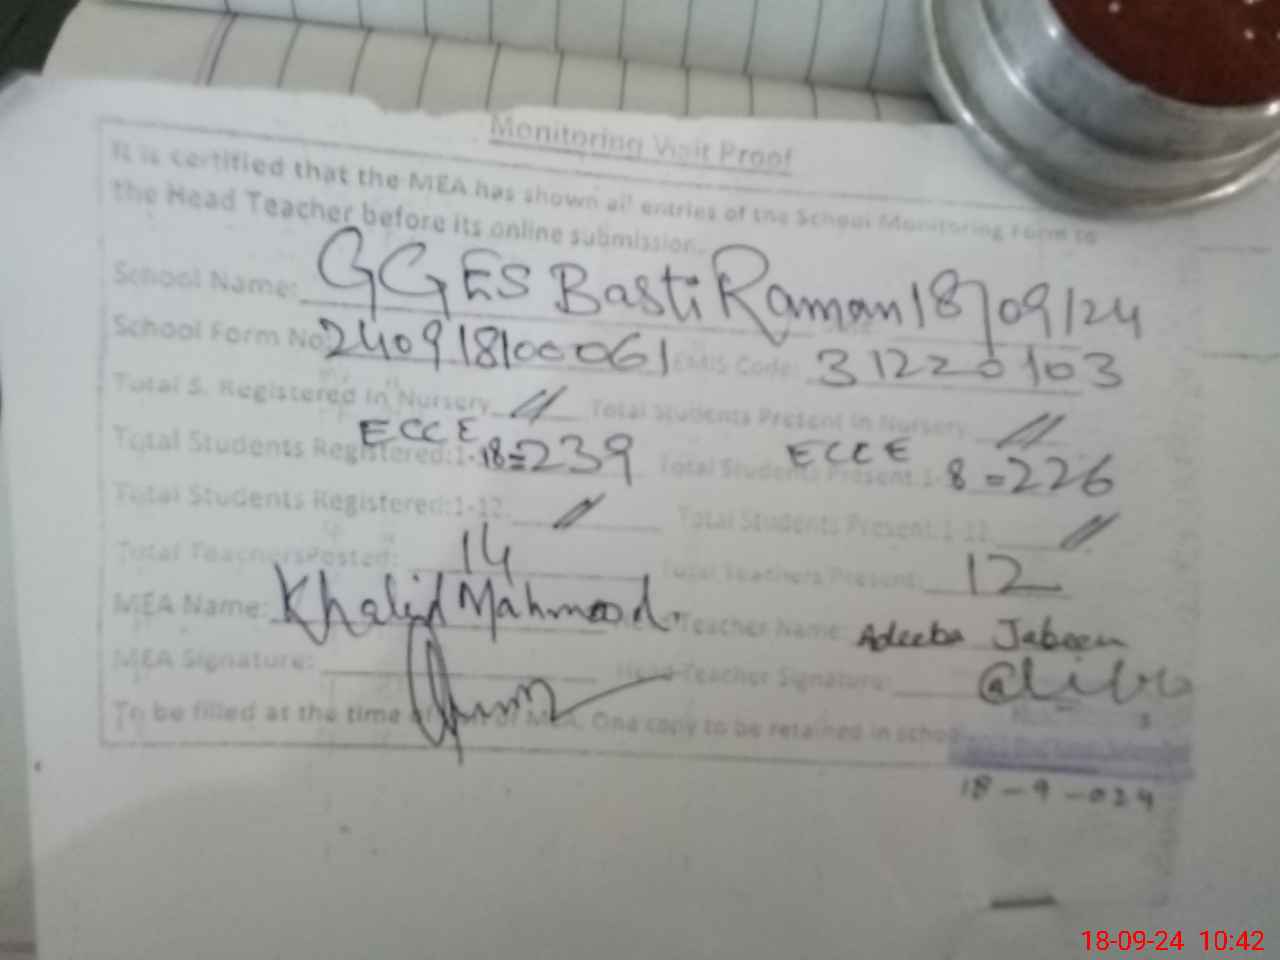 Monitoring Visit Proof
It is certified that the MEA has shown all entries of the School Monitoring Form to
the Head Teacher before its online submission.
School Name: GGES Basti Raman 18/09/24
School Form No: 240918100061 EMIS Code: 31220103
Total S. Registered in Nursery // Total Students Present in Nursery //
ECCE ECCE
Total Students Registered:1-8=239 Total Students Present:1-8=226
Total Students Registered:1-12: // Total Students Present:1-12: //
Total TeachersPosted: 14 Total Teachers Present: 12
MEA Name: Khalid Mahmood. Teacher Name: Adeeba Jabeen
MEA Signature: Head Teacher Signature:
To be filled at the time of MEA. One copy to be retained in school
18-9-024
18-09-24 10:42